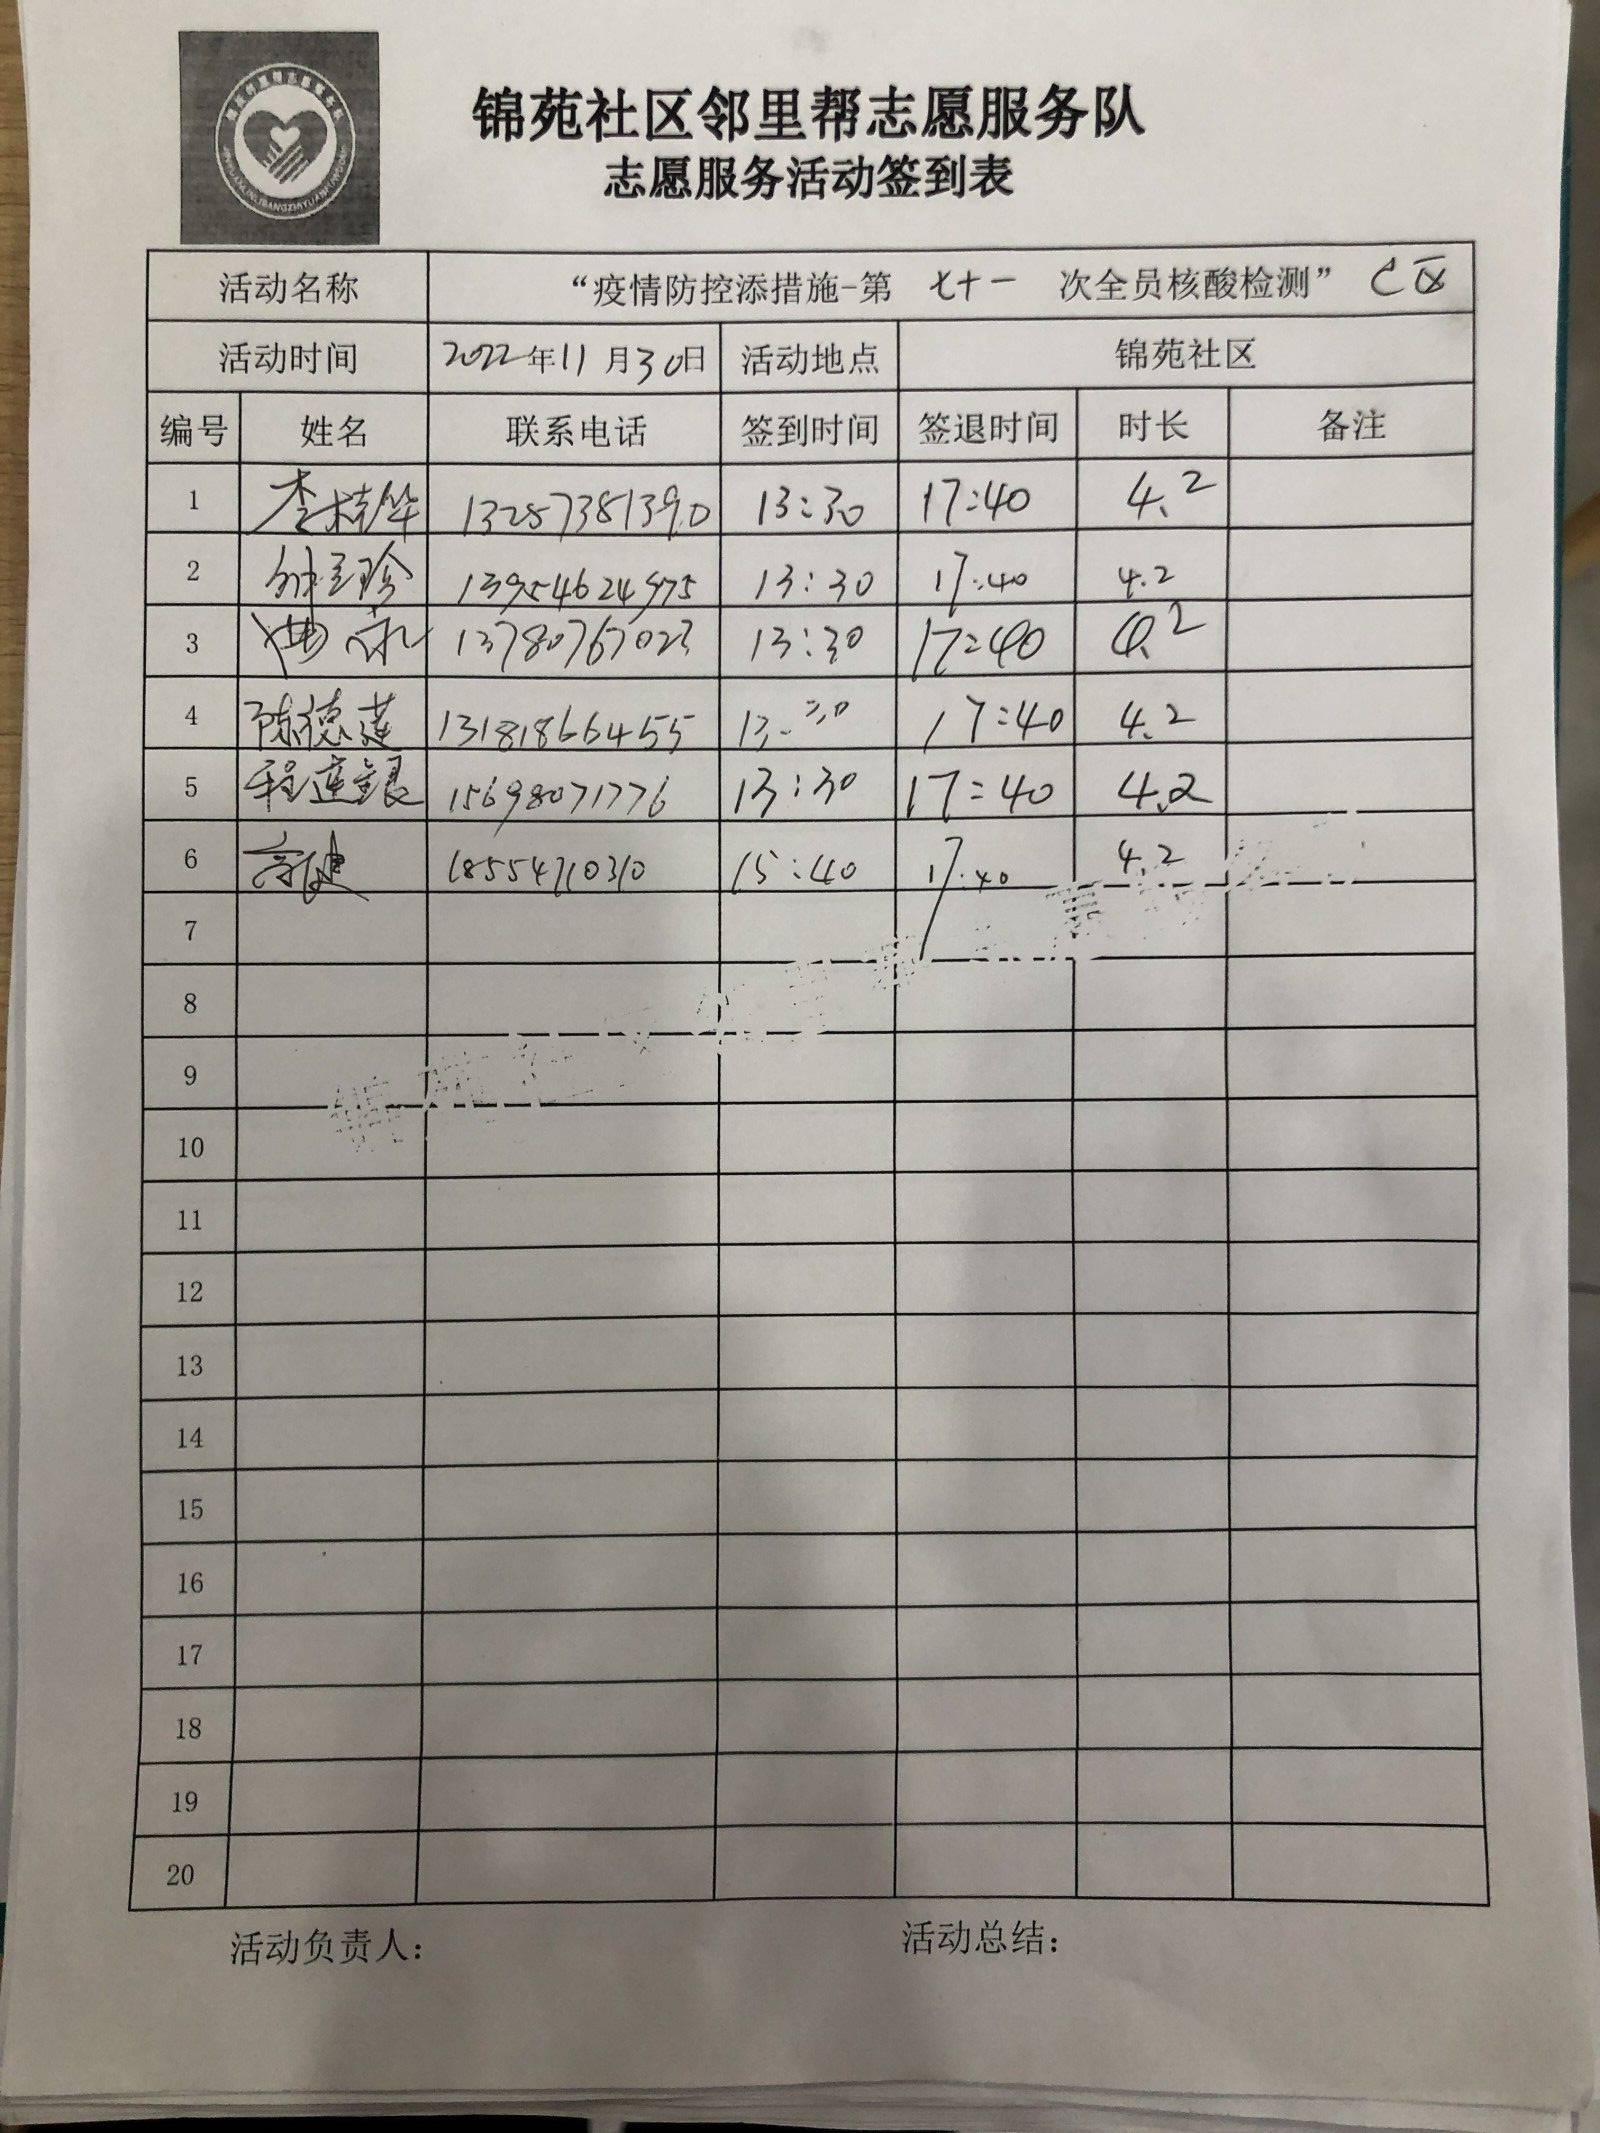 锦苑社区邻里帮志愿服务队
志愿服务活动签到表
活动名称 “疫情防控添措施-第 七十一 次全员核酸检测” C区
活动时间 2022年11月30日 活动地点 锦苑社区
编号 姓名 联系电话 签到时间 签退时间 时长 备注
1 李桂华 13287381390 13:30 17:40 4.2
2 13954624975 13:30 17:40 4.2
3 13780767023 13:30 17:40 4.2
4 陈德莲 13181866455 13:30 17:40 4.2
5 程连银 15698071776 13:30 17:40 4.2
6 高健 18554710310 15:40 17:40 4.2
7
8
9
10
11
12
13
14
15
16
17
18
19
20
活动负责人: 活动总结: